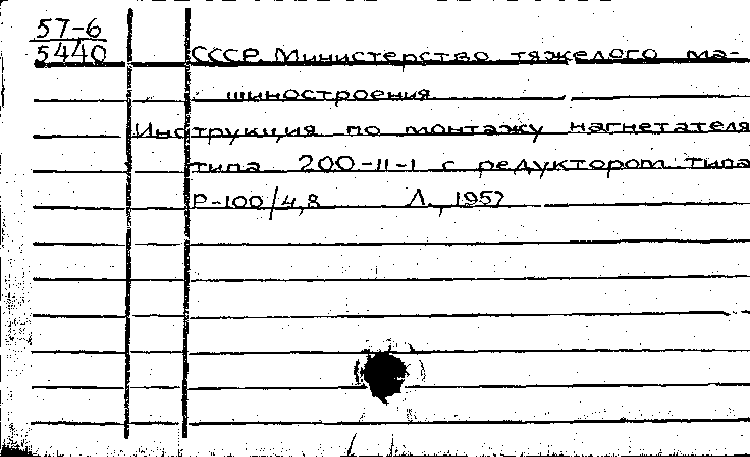 57-6
5440
СССР. Министерство тяжелого ма-
шиностроения
Инструкция по монтажу нагнетателя
типа 200-11-1 с редуктором типа
Р-100/4,8 Л., 1957